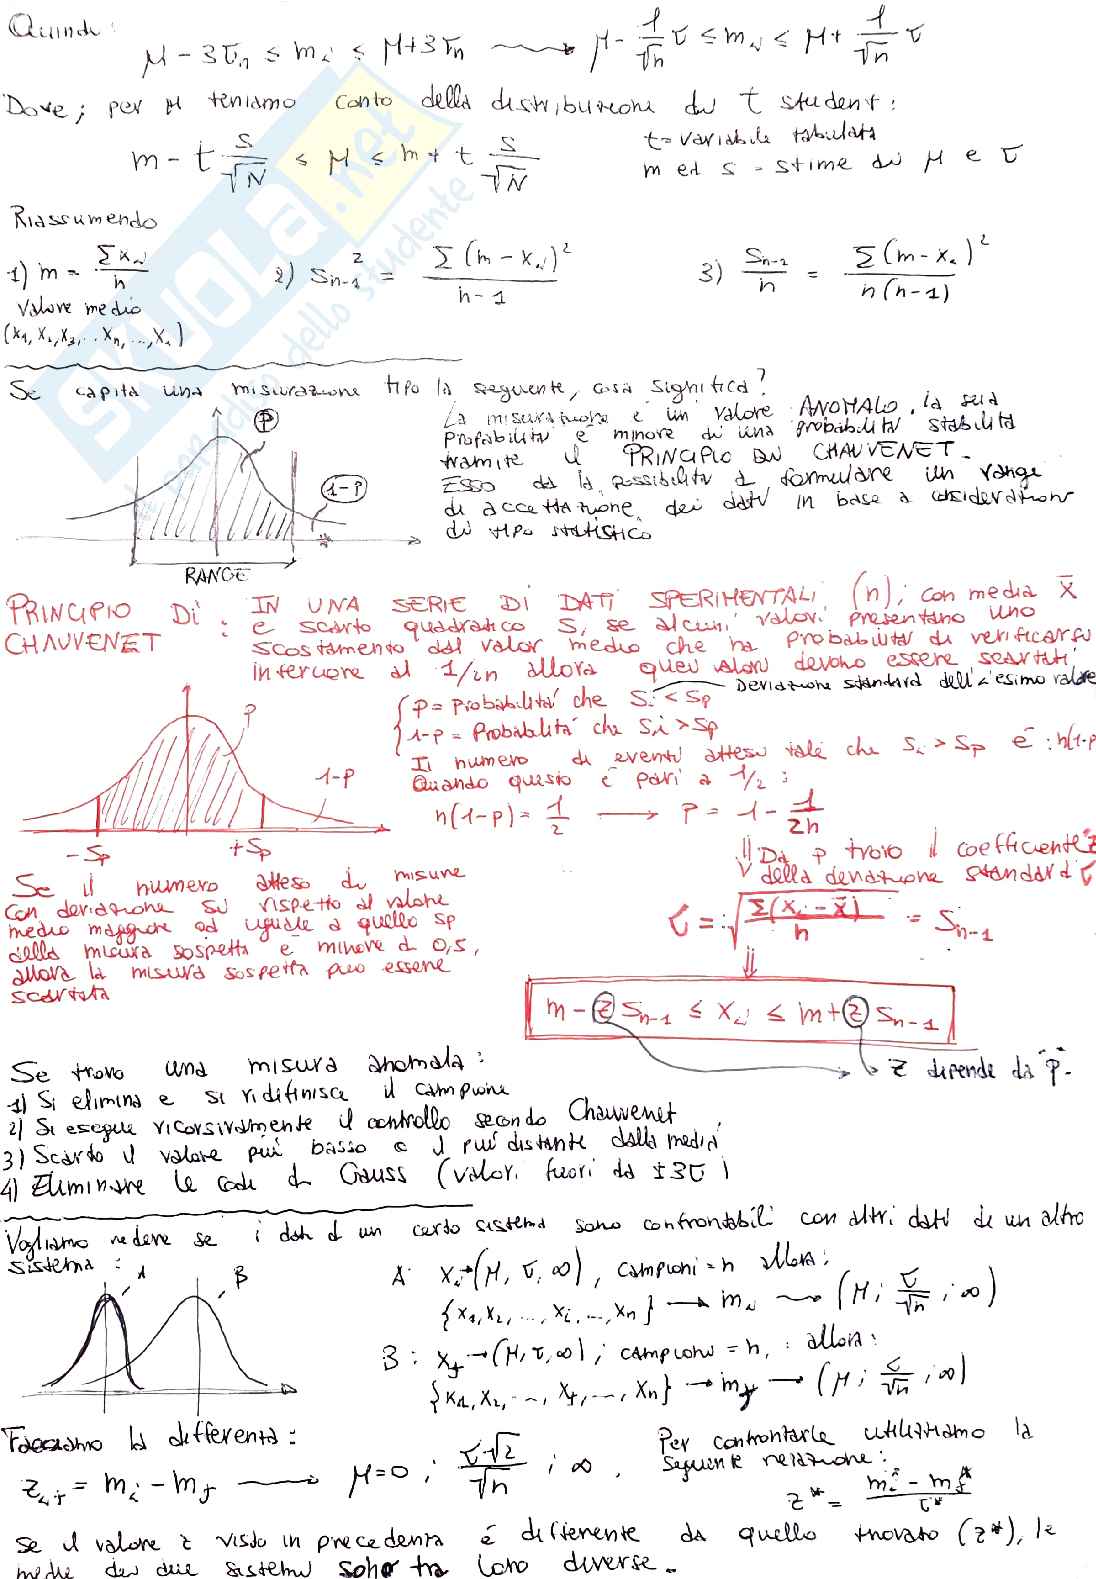 Quindi:
μ - 3σn ≤ mi ≤ μ+3σn → μ - 1/√n σ ≤ mi ≤ μ + 1/√n σ
Dove; per μ teniamo conto della distribuzione di t student:
m - t S/√N ≤ μ ≤ m + t S/√N
t = variabile tabulata
m ed s - stime di μ e σ
Riassumendo
1) m = Σxi/n
Valore medio
(x1, x2, x3, .. xn, ..., xi)
2) S²n-1 = Σ(m - xi)²/n-1
3) Sn-1/n = Σ(m-xi)²/n(n-1)
Se capita una misurazione tipo la seguente, cosa significa?
La misurazione è un valore ANOMALO, la sua
probabilità è minore di una probabilità stabilita
tramite il PRINCIPIO DI CHAUVENET.
Esso dà la possibilità di formulare un range
di accettazione dei dati in base a considerazioni
di tipo statistico
P
1-P
RANGE
PRINCIPIO DI CHAUVENET :
IN UNA SERIE DI DATI SPERIMENTALI (n); con media x̄
e scarto quadratico S, se alcuni valori presentano uno
scostamento dal valor medio che ha probabilità di verificarsi
inferiore al 1/2n allora quei valori devono essere scartati
Deviazione standard dell'i-esimo valore
P = Probabilità che Si < Sp
1-P = Probabilità che Si > Sp
Il numero di eventi attesi tale che Si > Sp è: n(1-p
Quando questo è pari a 1/2:
n(1-p) = 1/2 → P = 1 - 1/2n
P
1-P
-Sp
+Sp
⇓ Da p trovo il coefficiente z
della deviazione standard σ
σ = √Σ(xi - x̄)/n = Sn-1
⇓
m - z Sn-1 ≤ xi ≤ m + z Sn-1
z dipende da "p".
Se il numero atteso di misure
con deviazione su rispetto al valore
medio maggiore od uguale a quello sp
della misura sospetta è minore di 0,5,
allora la misura sospetta può essere
scartata
Se trovo una misura anomala:
1) Si elimina e si ridifinisce il campione
2) Si esegue ricorsivamente il controllo secondo Chauvenet
3) Scarto il valore più basso e il più distante dalla media
4) Eliminare le code di Gauss (valori fuori da ±3σ)
Vogliamo vedere se i dati di un certo sistema sono confrontabili con altri dati di un altro
sistema:
A
B
A: xi→(μ, σ, ∞), campioni = n allora:
{x1, x2, ..., xi, ..., xn} → mi → (μ; σ/√n; ∞)
B: xj→(μ, σ, ∞); campioni = n, : allora:
{x1, x2, ..., xj, ..., xn} → mj → (μ; σ/√n; ∞)
Facciamo la differenza:
zij = mi - mj → μ=0; σ√2/√n; ∞.
Per confrontarle utilizziamo la
seguente relazione:
z* = mi* - mj*/σ*
se il valore z visto in precedenza è differente da quello trovato (z*), le
medie dei due sistemi sono tra loro diverse.
SKUOLA.net